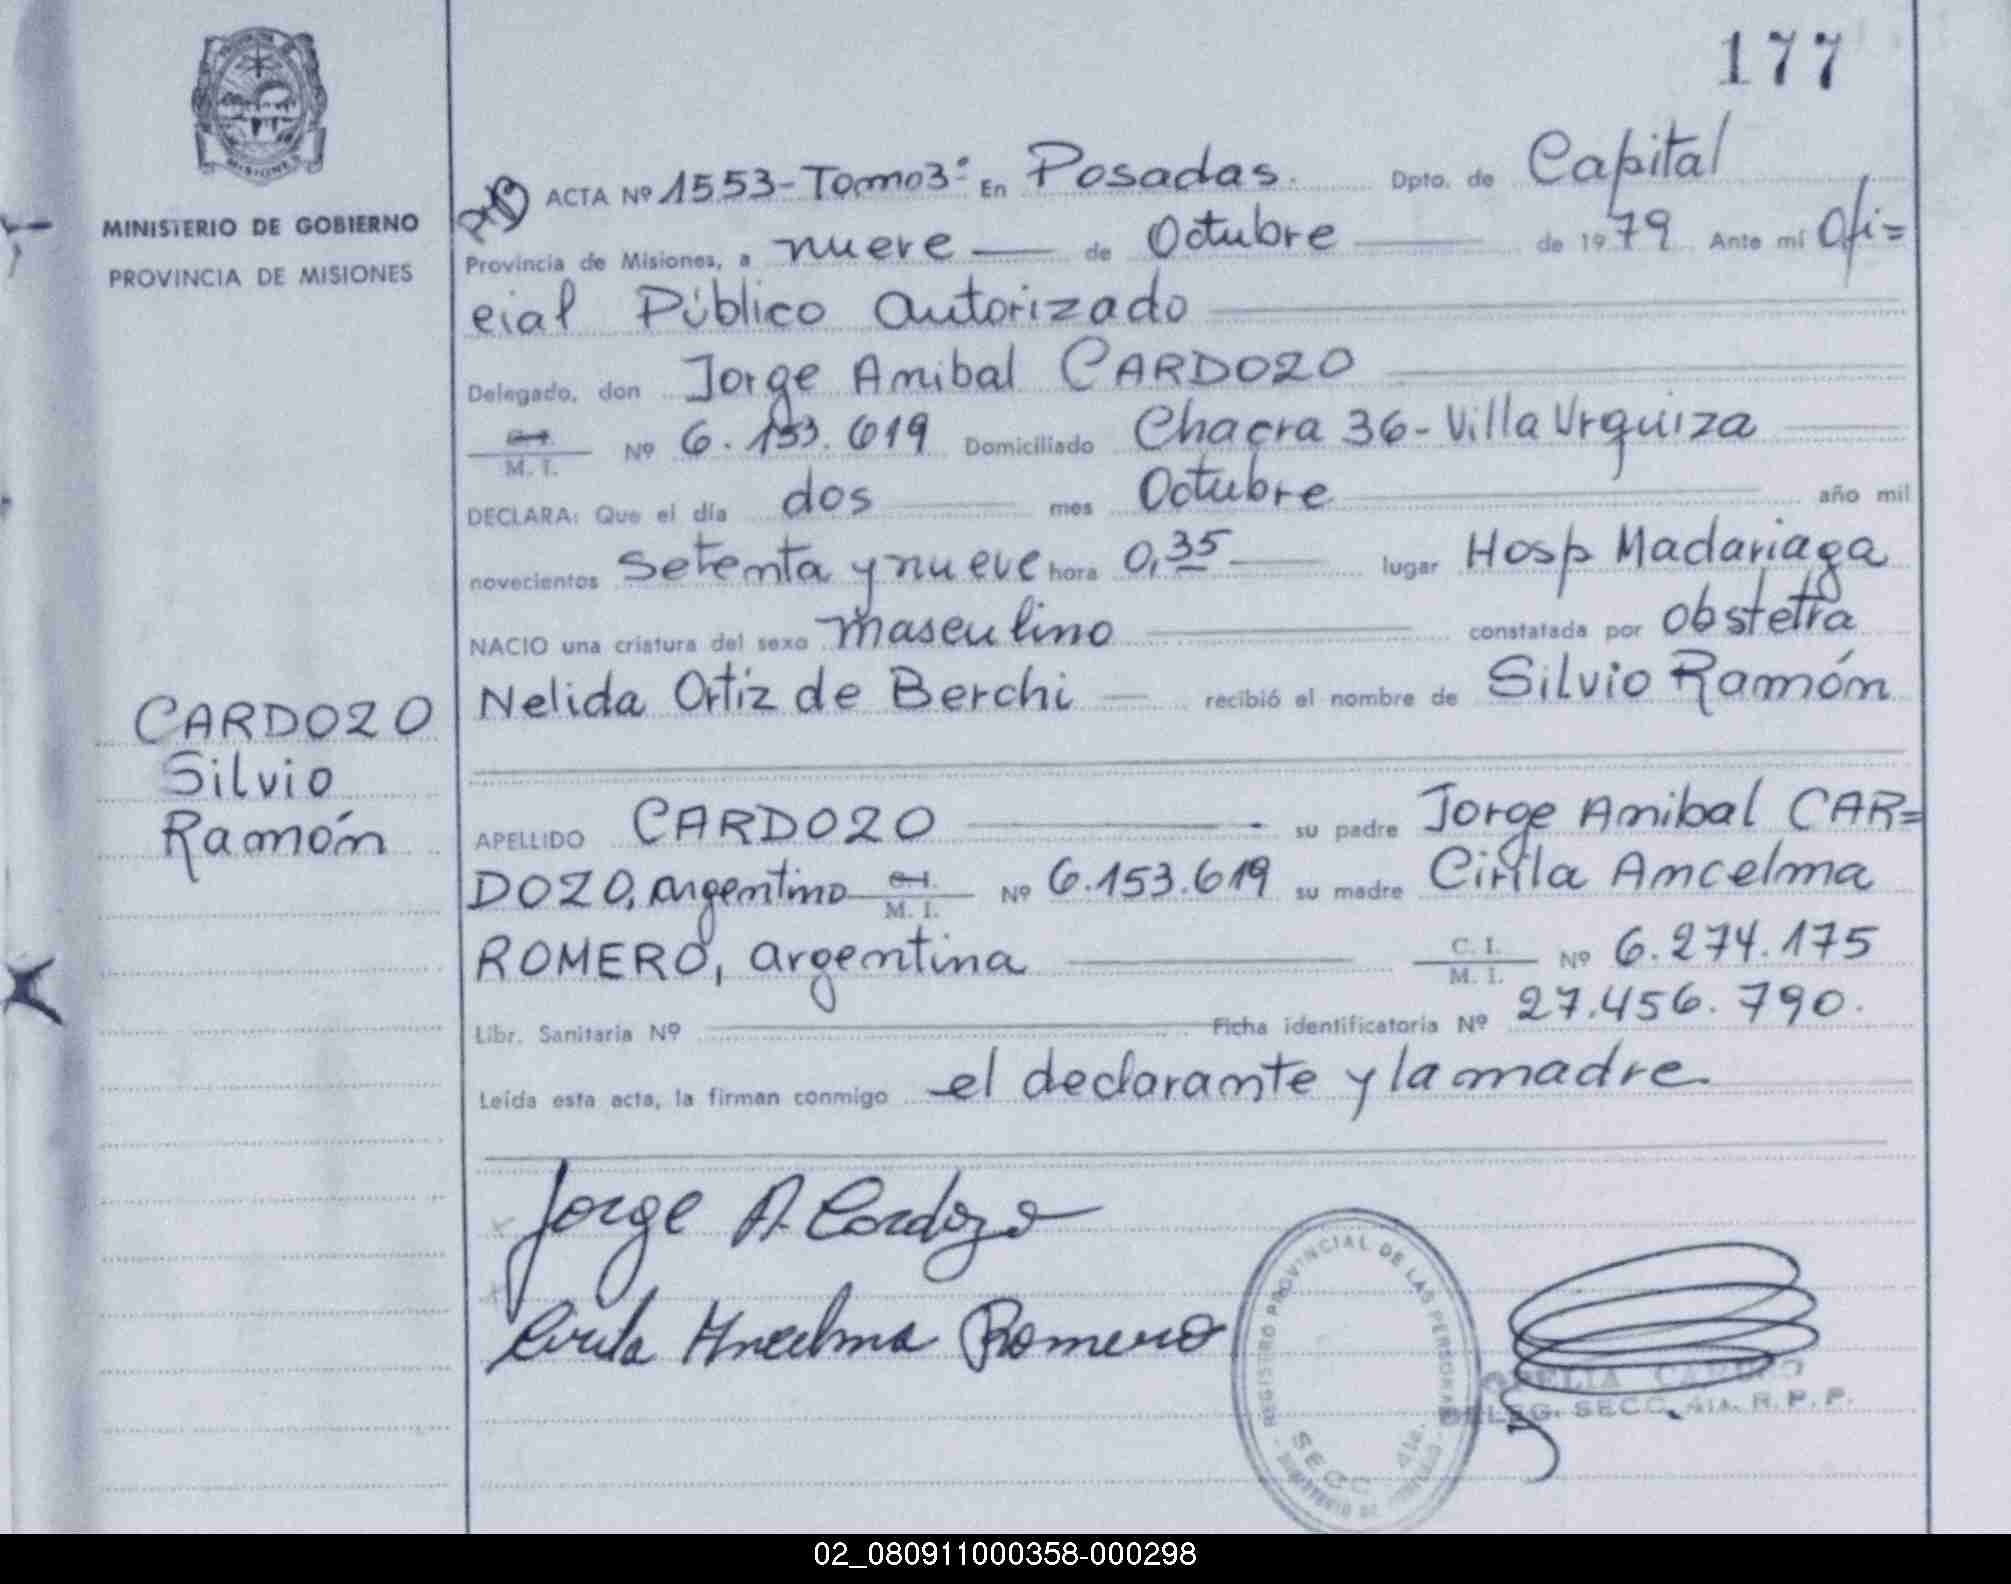 177
MINISTERIO DE GOBIERNO
PROVINCIA DE MISIONES
ACTA Nº 1553-Tomo3º En Posadas. Dpto. de Capital
Provincia de Misiones, a nueve de Octubre de 1979 Ante mí Ofi=
cial Público Autorizado
Delegado, don Jorge Anibal CARDOZO
C.I. M. I. Nº 6.153.619 Domiciliado Chacra 36-Villa Urquiza
DECLARA: Que el día dos mes Octubre año mil
novecientos setenta y nueve hora 0,35 lugar Hosp Madariaga
NACIO una criatura del sexo masculino constatada por obstetra
Nelida Ortiz de Berchi recibió el nombre de Silvio Ramón
CARDOZO
Silvio
Ramón
APELLIDO CARDOZO su padre Jorge Anibal CAR=
DOZO, argentino C.I. M. I. Nº 6.153.619 su madre Cirila Ancelma
ROMERO, argentina C. I. M. I. Nº 6.274.175
Libr. Sanitaria Nº Ficha identificatoria Nº 27.456.790.
Leída esta acta, la firman conmigo el declarante y la madre
Jorge A. Cardozo
Cirila Ancelma Romero
REGISTRO PROVINCIAL DE LAS PERSONAS
SECC. 4ta.
DELEG. SECC. 4ta. R. P. P.
02_080911000358-000298